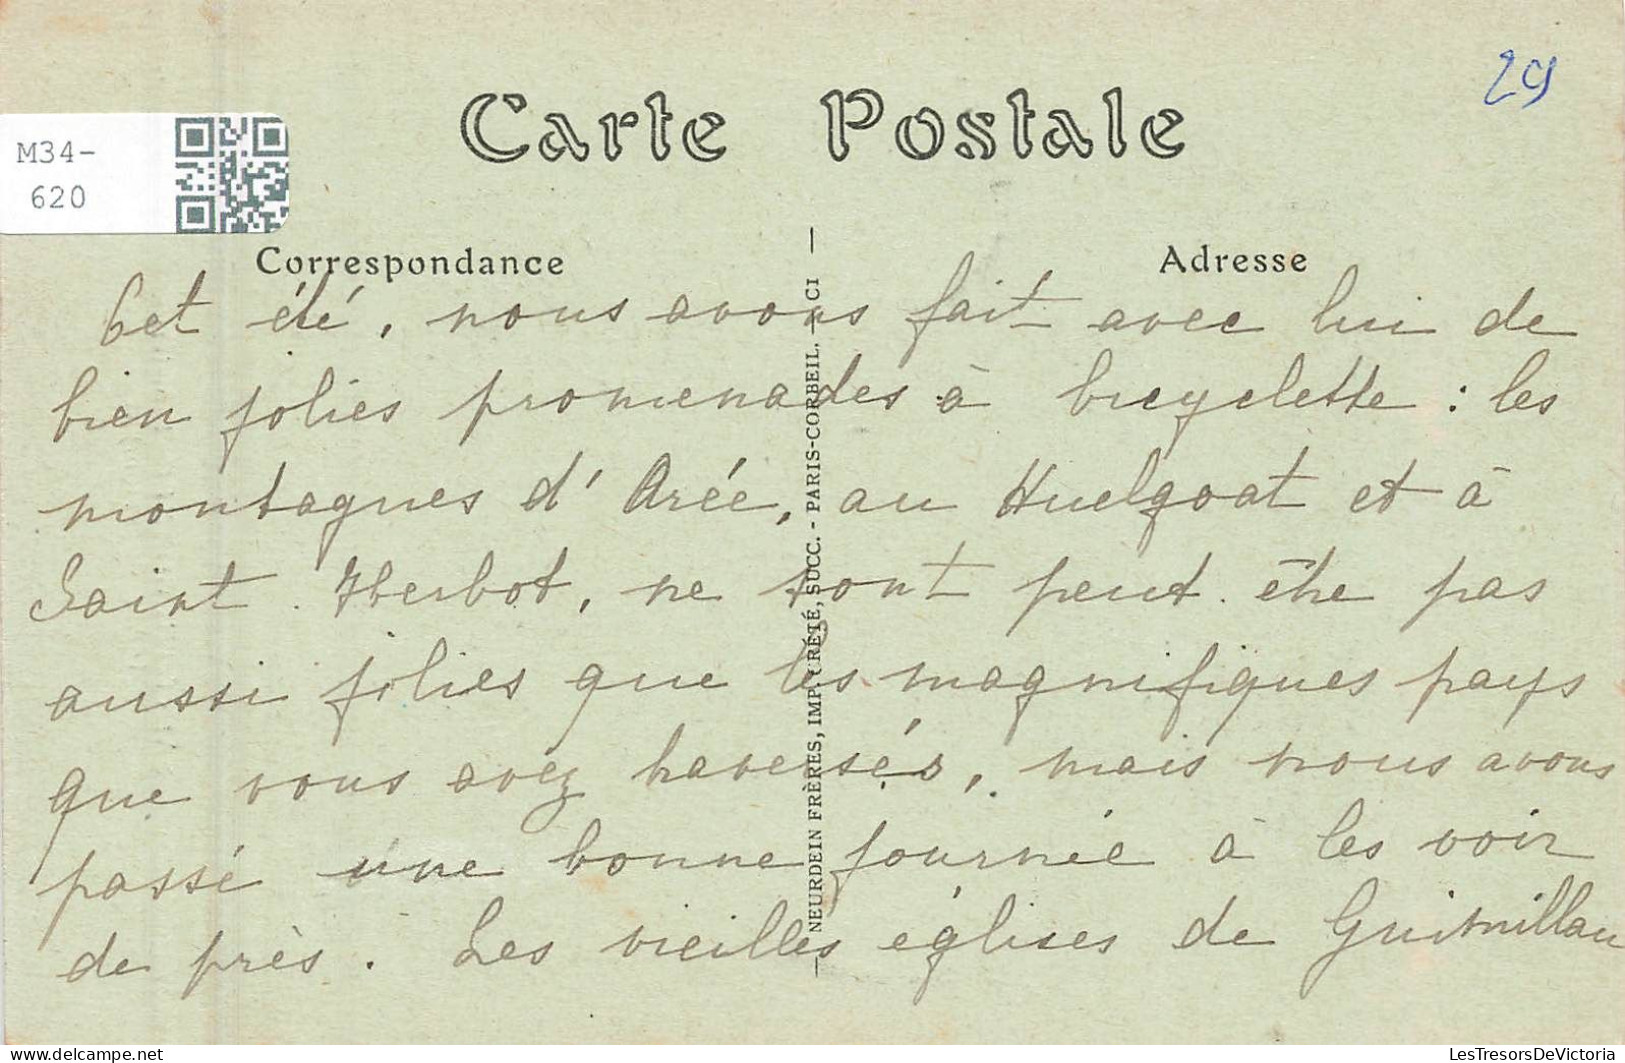 29
Carte Postale
M34-
620
Correspondance
Adresse
Cet été, nous avons fait avec lui de
bien jolies promenades à bicyclette : les
montagnes d'Arée, au Huelgoat et à
Saint. Herbot, ne sont peut. être pas
aussi jolies que les magnifiques pays
que vous avez traversés, mais nous avons
passé une bonne journée à les voir
de près. Les vieilles églises de Guimillau
NEURDEIN FRÈRES, IMP. CRÉTÉ, SUCC. - PARIS-CORBEIL.
delcampe.net
LesTresorsDeVictoria